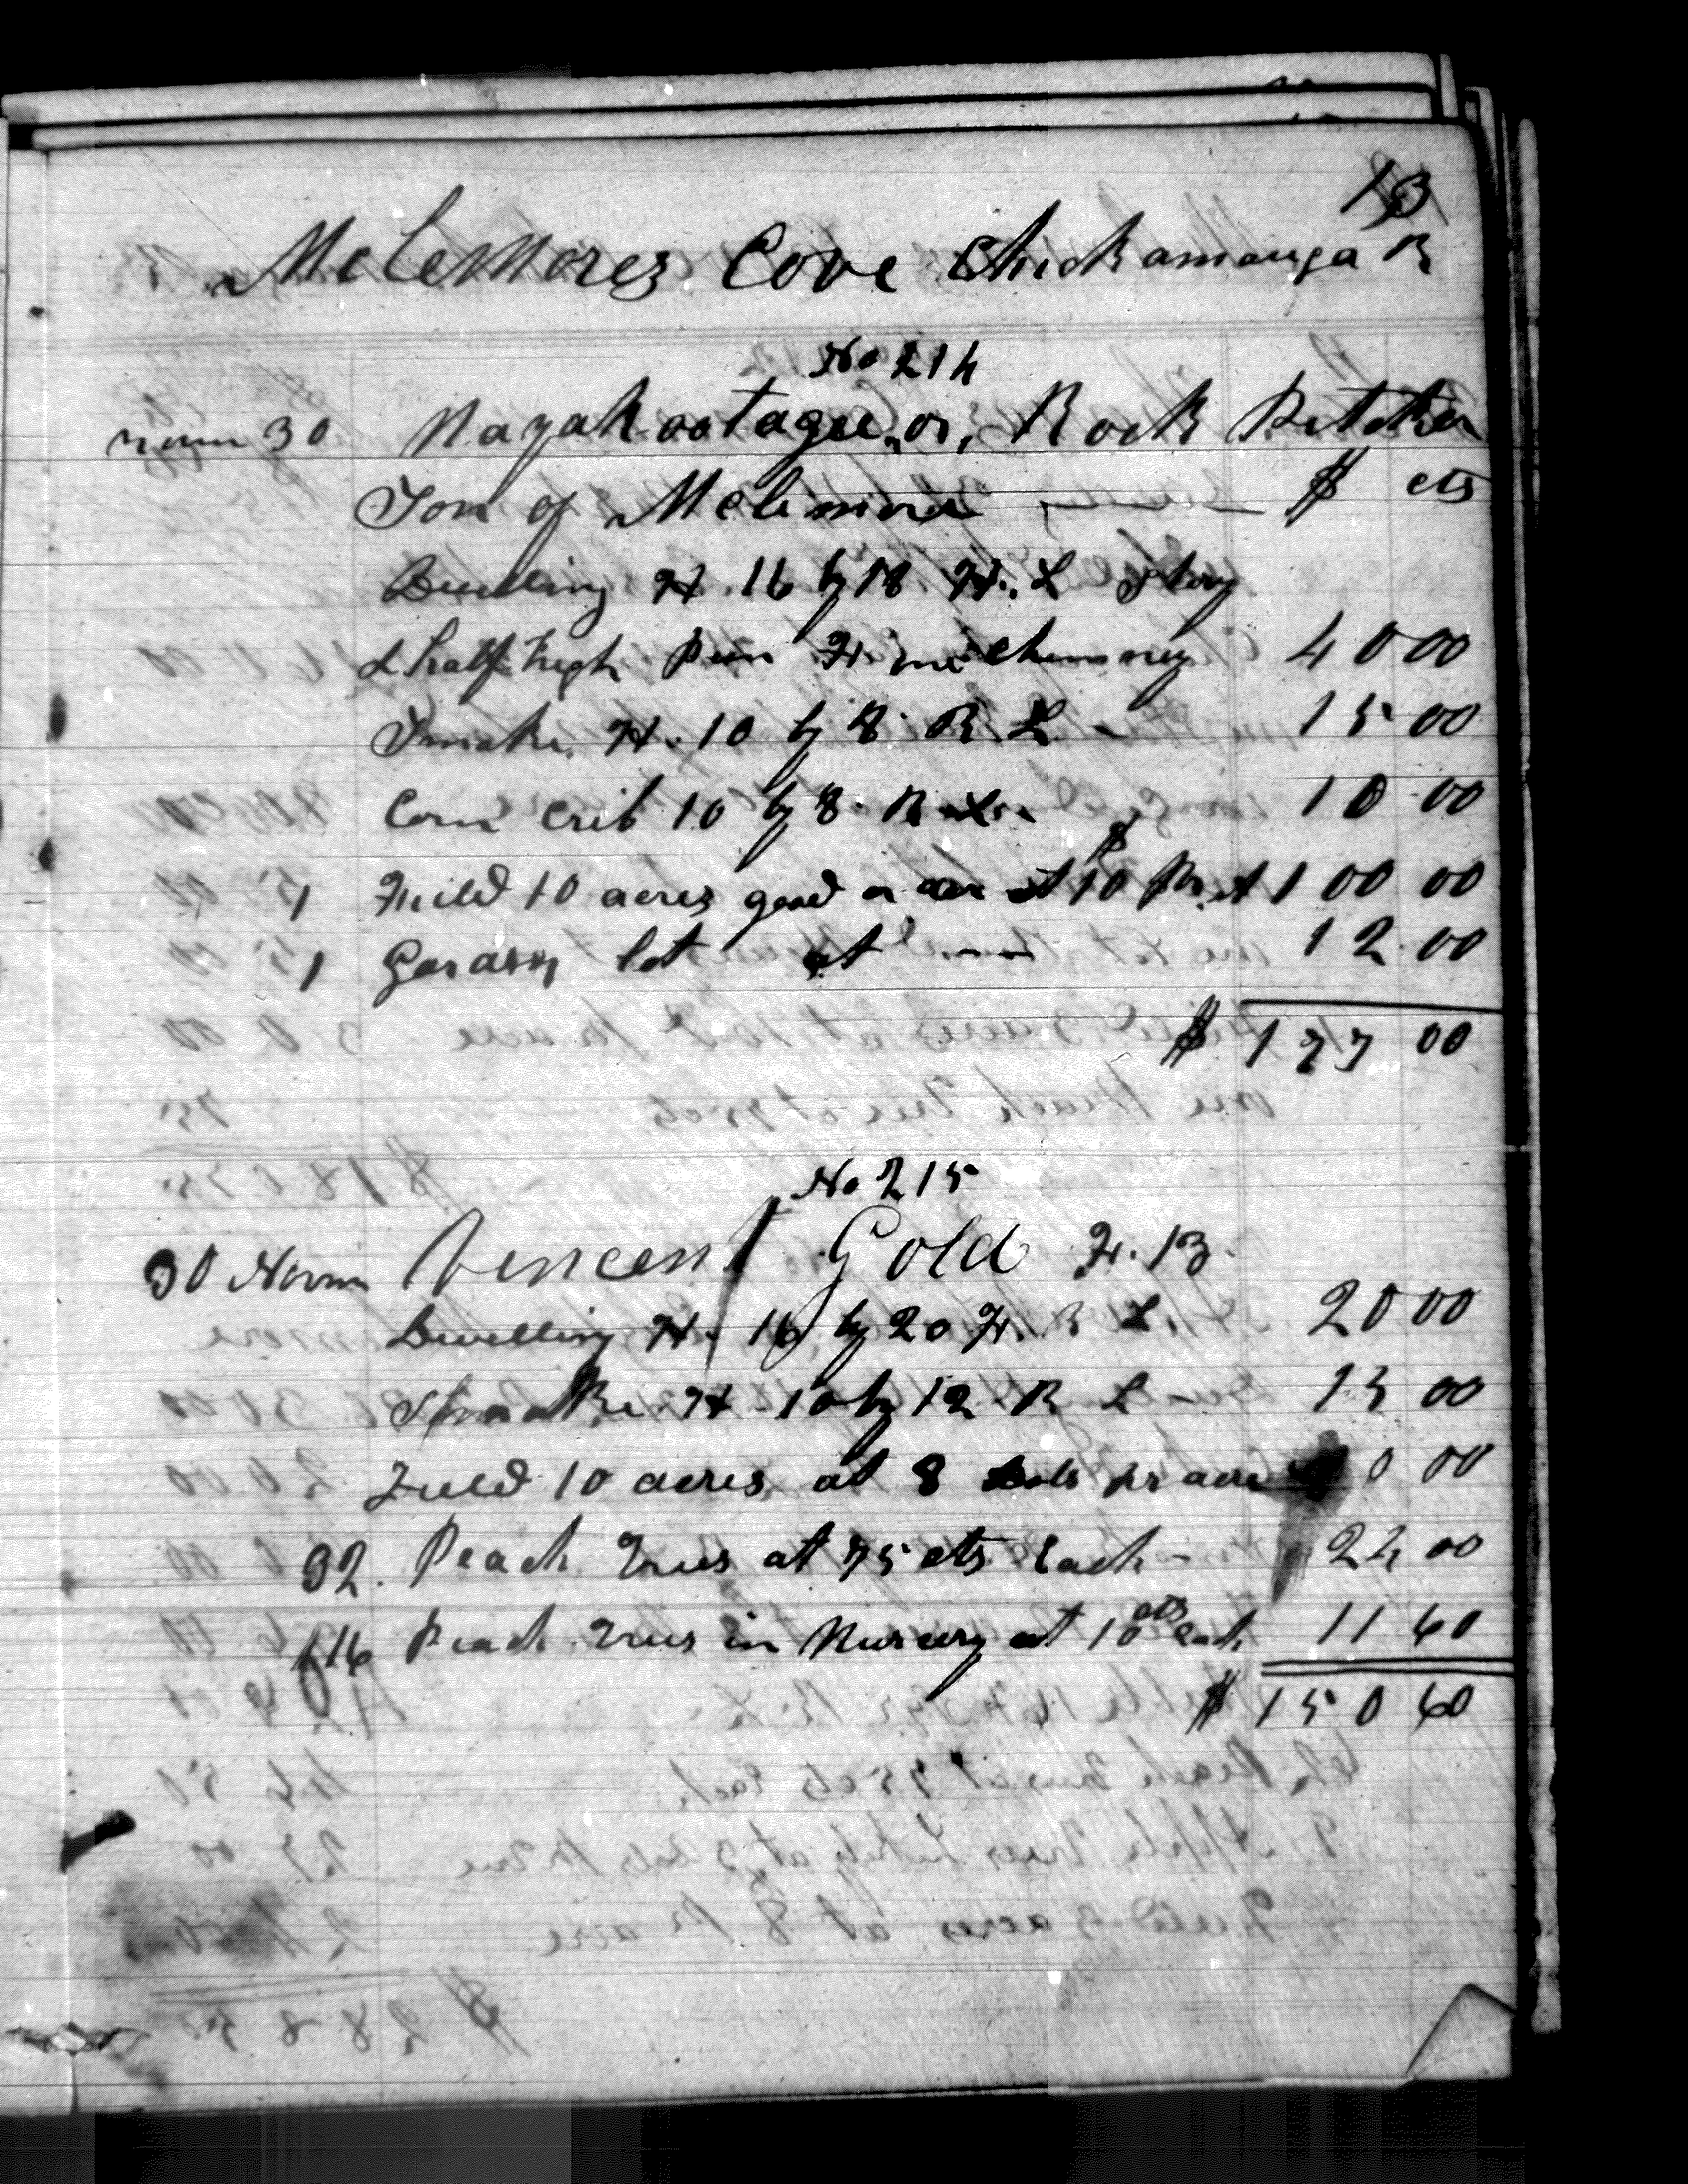 13
McLeMores Cove Chickamauga R
No 214
novm 30 Nayahootagee, or, Rock Pitcher
Son of McLemore $ cts
Dwelling H. 16 by 18 H. L Story
& half high Pun Fl. one Chimney 40 00
Smoke H. 10 by 8. R. L 15 00
Corn Crib 10 by 8. R L. 10 00
1 Field 10 acres good at $10 Pr. A 100 00
1 Garden lot at 12 00
$ 177 00
No 215
30 Novm Vincent Gold
Dwelling H. 16 by 20 R L. 20 00
Smoke H 10 by 12 R L 15 00
Field 10 acres at 8 dols pr acre 0 00
32 Peach Trees at 75 cts Each 24 00
116 Peach Trees in Nursery at 10 cts Each 11 60
$ 150 60